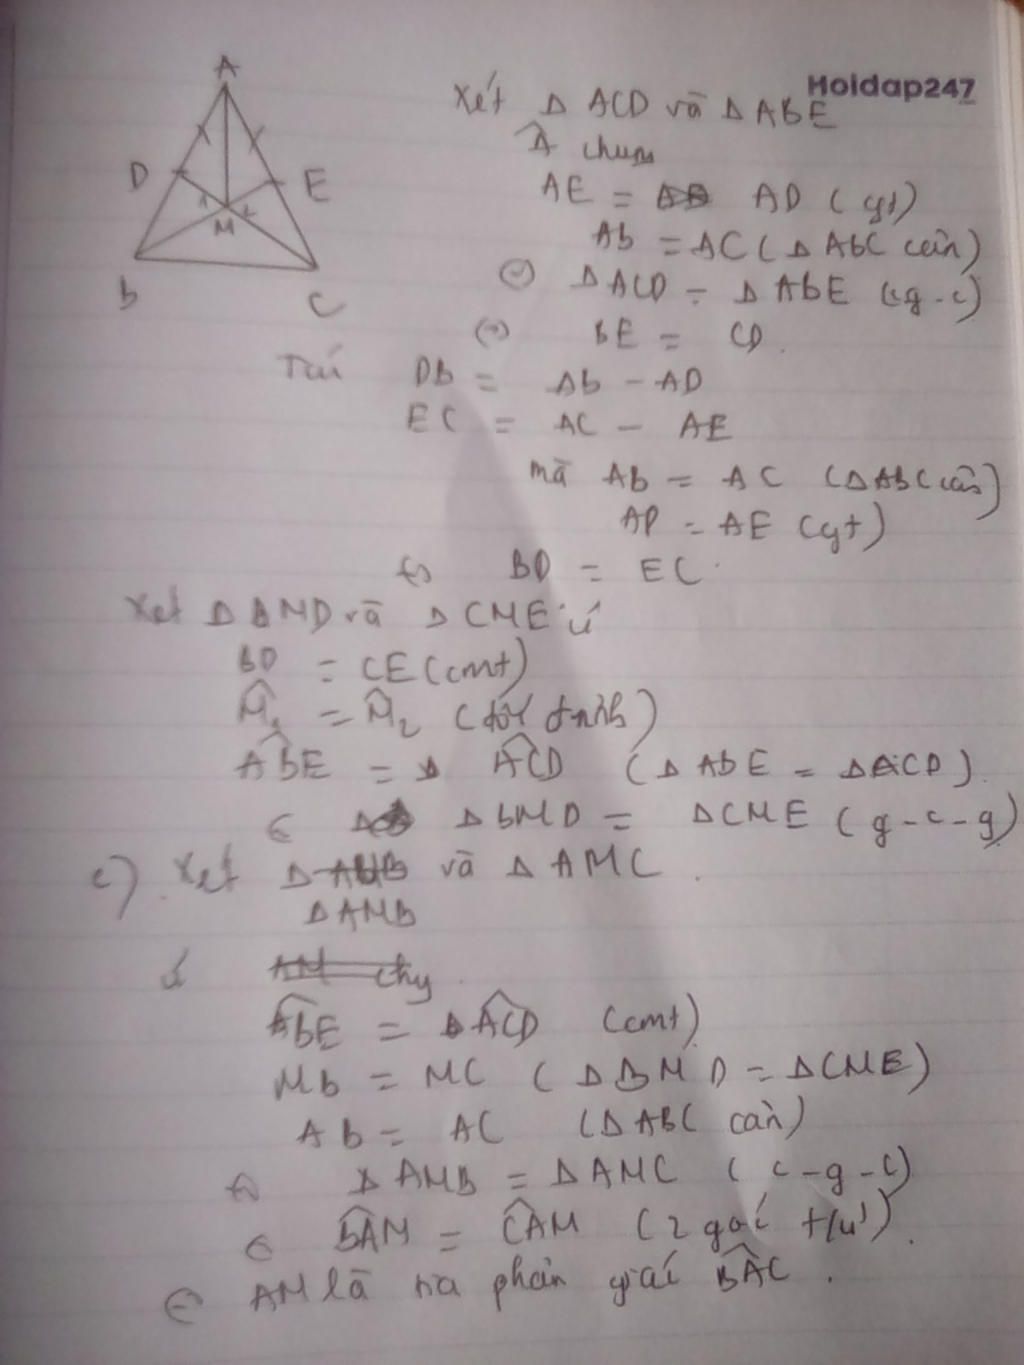 Hoidap247
A
D
E
M
b
C
Xét Δ ACD và Δ ABE
Â chung
AE = AD (gt)
Ab = AC (Δ AbC cân)
Δ ACD = Δ AbE (c-g-c)
BE = CD.
Db = Ab - AD
EC = AC - AE
mà Ab = AC (Δ AbC cân)
AD = AE (gt)
BD = EC.
Xét Δ BMD và Δ CME có
BD = CE (cmt)
M̂₁ = M̂₂ (đối đỉnh)
ABE = ACD (Δ AbE = Δ ACD).
Δ bMD = Δ CME (g-c-g)
c) Xét và Δ AMC.
Δ AMB
có
AbE = ACD (cmt)
Mb = MC (Δ BMD = Δ CME)
Ab = AC (Δ ABC cân)
Δ AMB = Δ AMC (c-g-c)
BAM = CAM (2 góc t/ư).
AM là phân giác BAC.